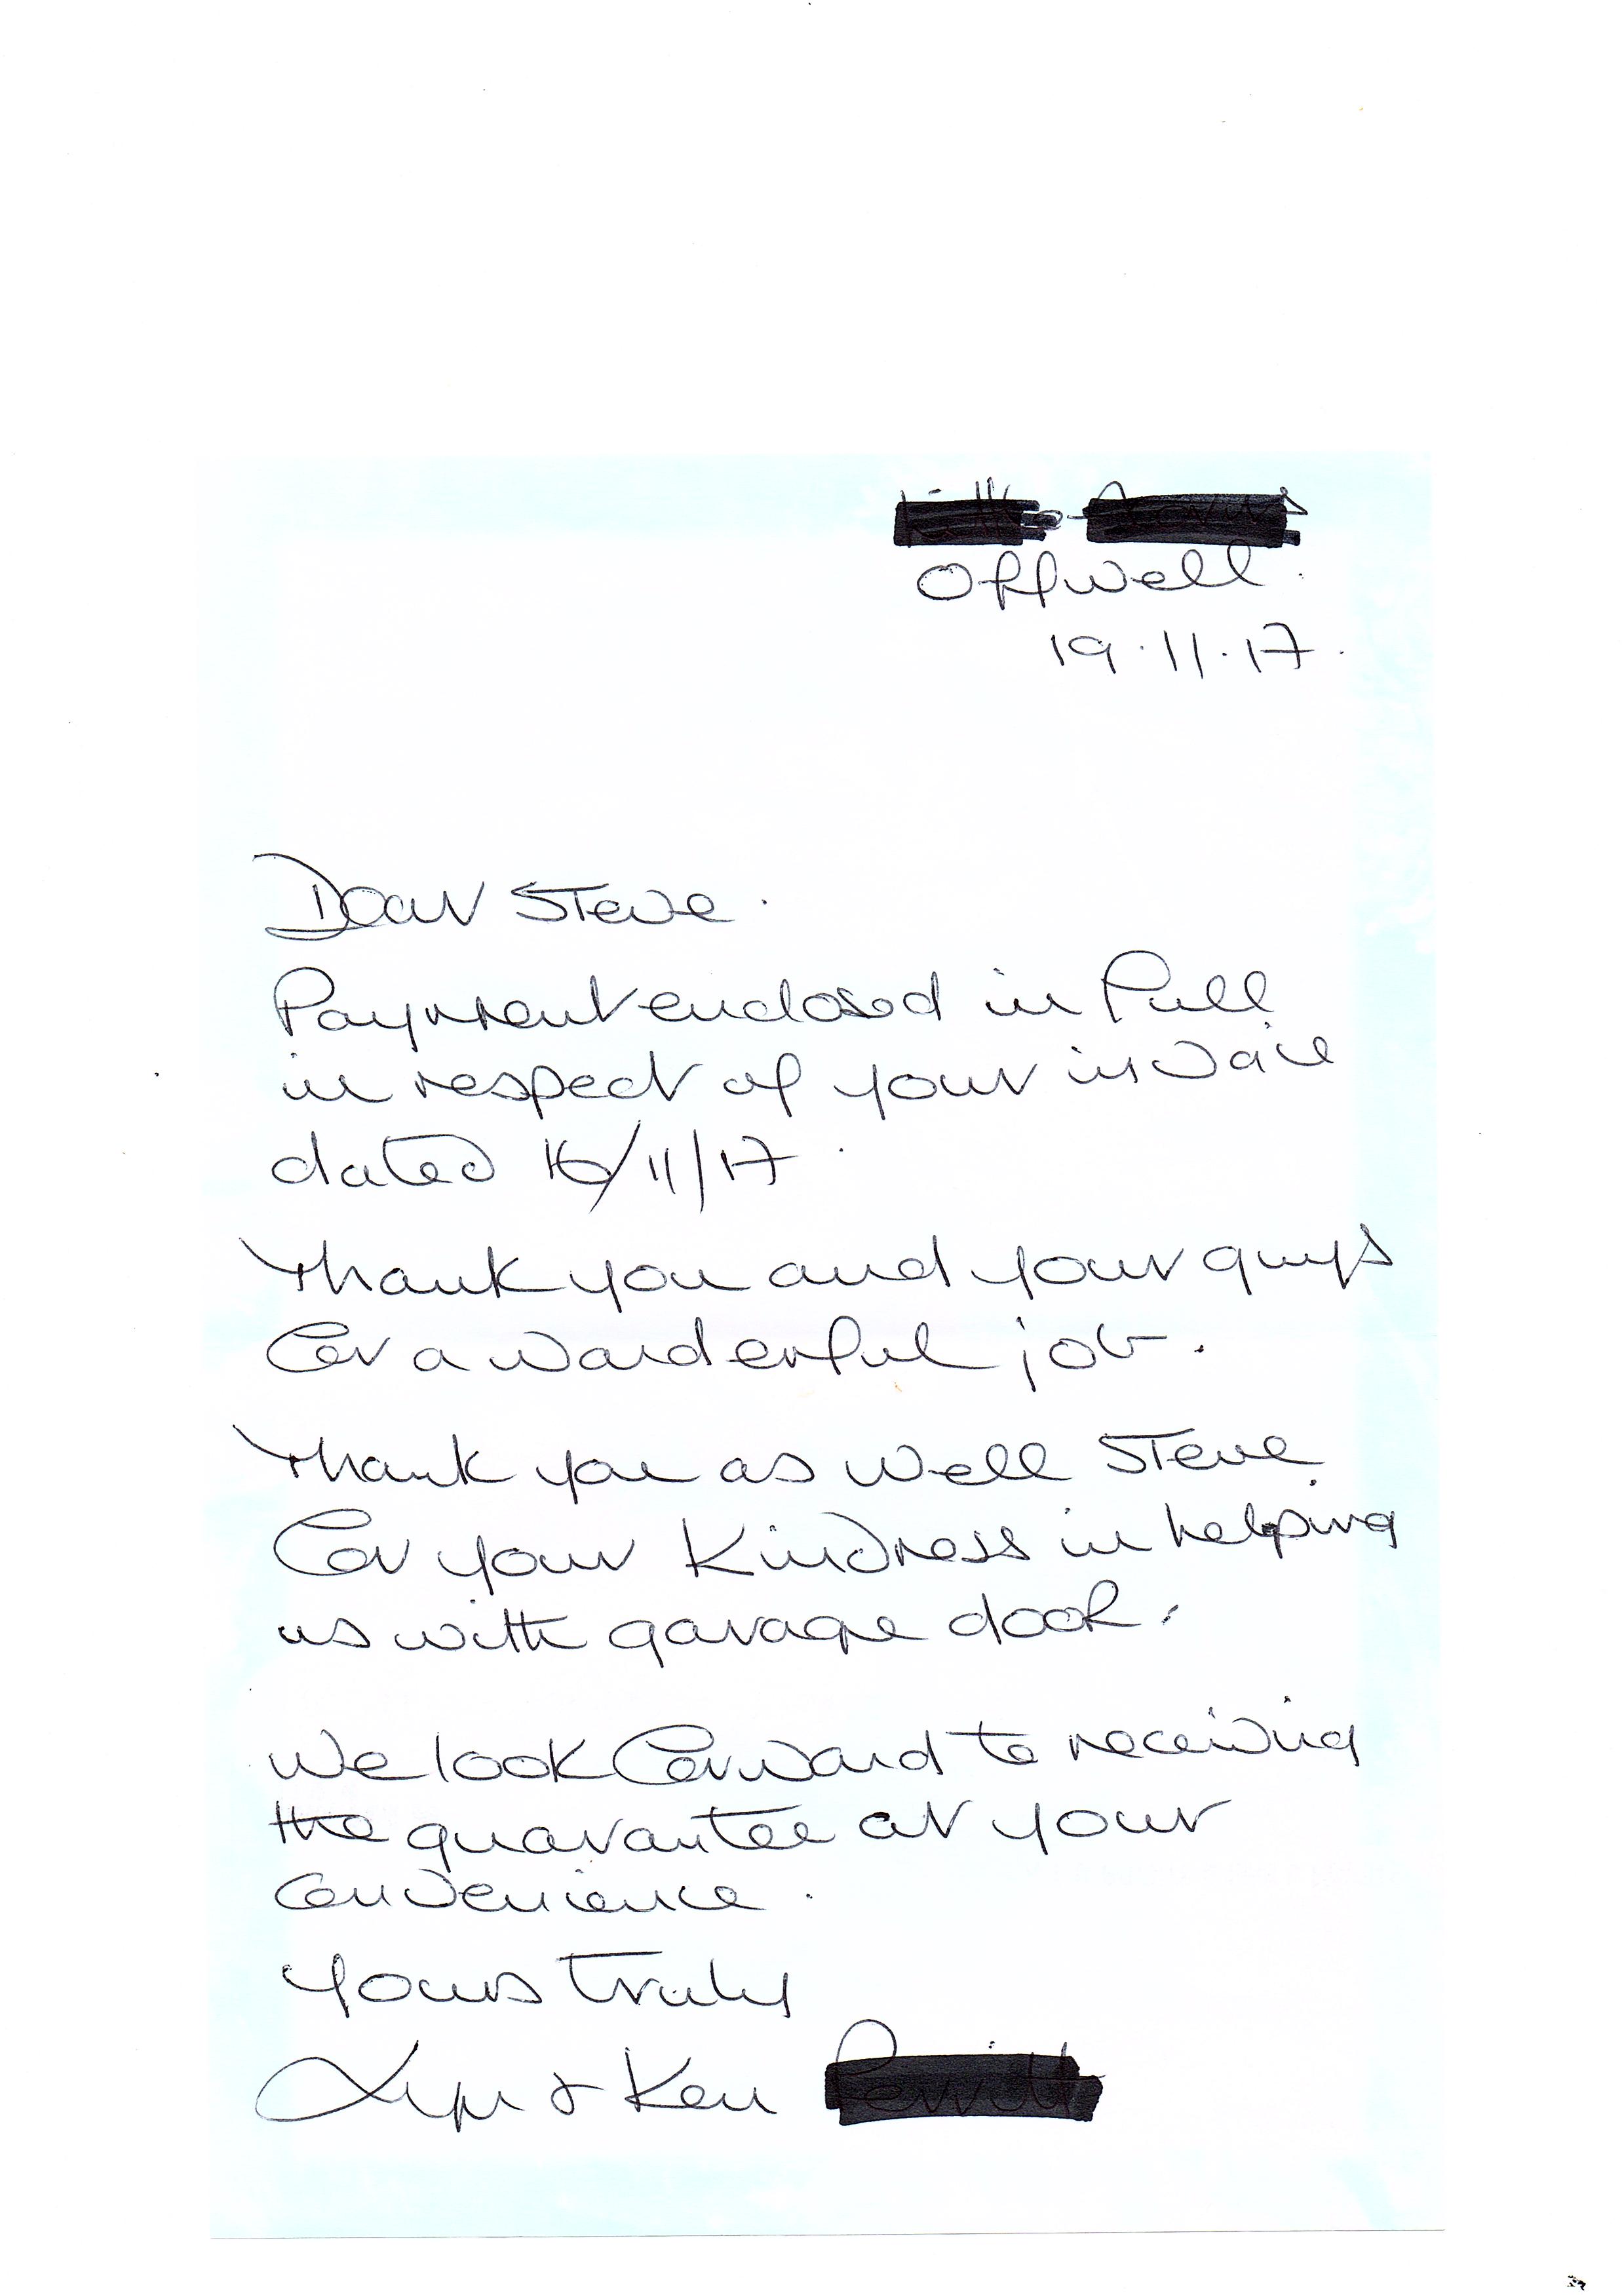 Offwell.
19.11.17.
Dear Steve.
Payment enclosed in full
in respect of your invoice
dated 16/11/17.
Thank you and your guys
for a wonderful job.
Thank you as well Steve
for your kindness in helping
us with garage door.
We look forward to receiving
the guarantee at your
convenience.
Yours truly
& Ken